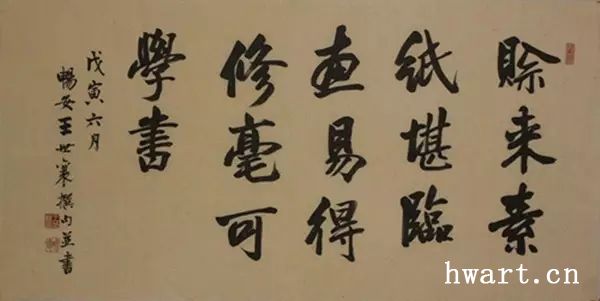 賒来素
紙堪臨
畫易得
修毫可
學書
戊寅六月
暢安王世襄撰句並書
hwart.cn